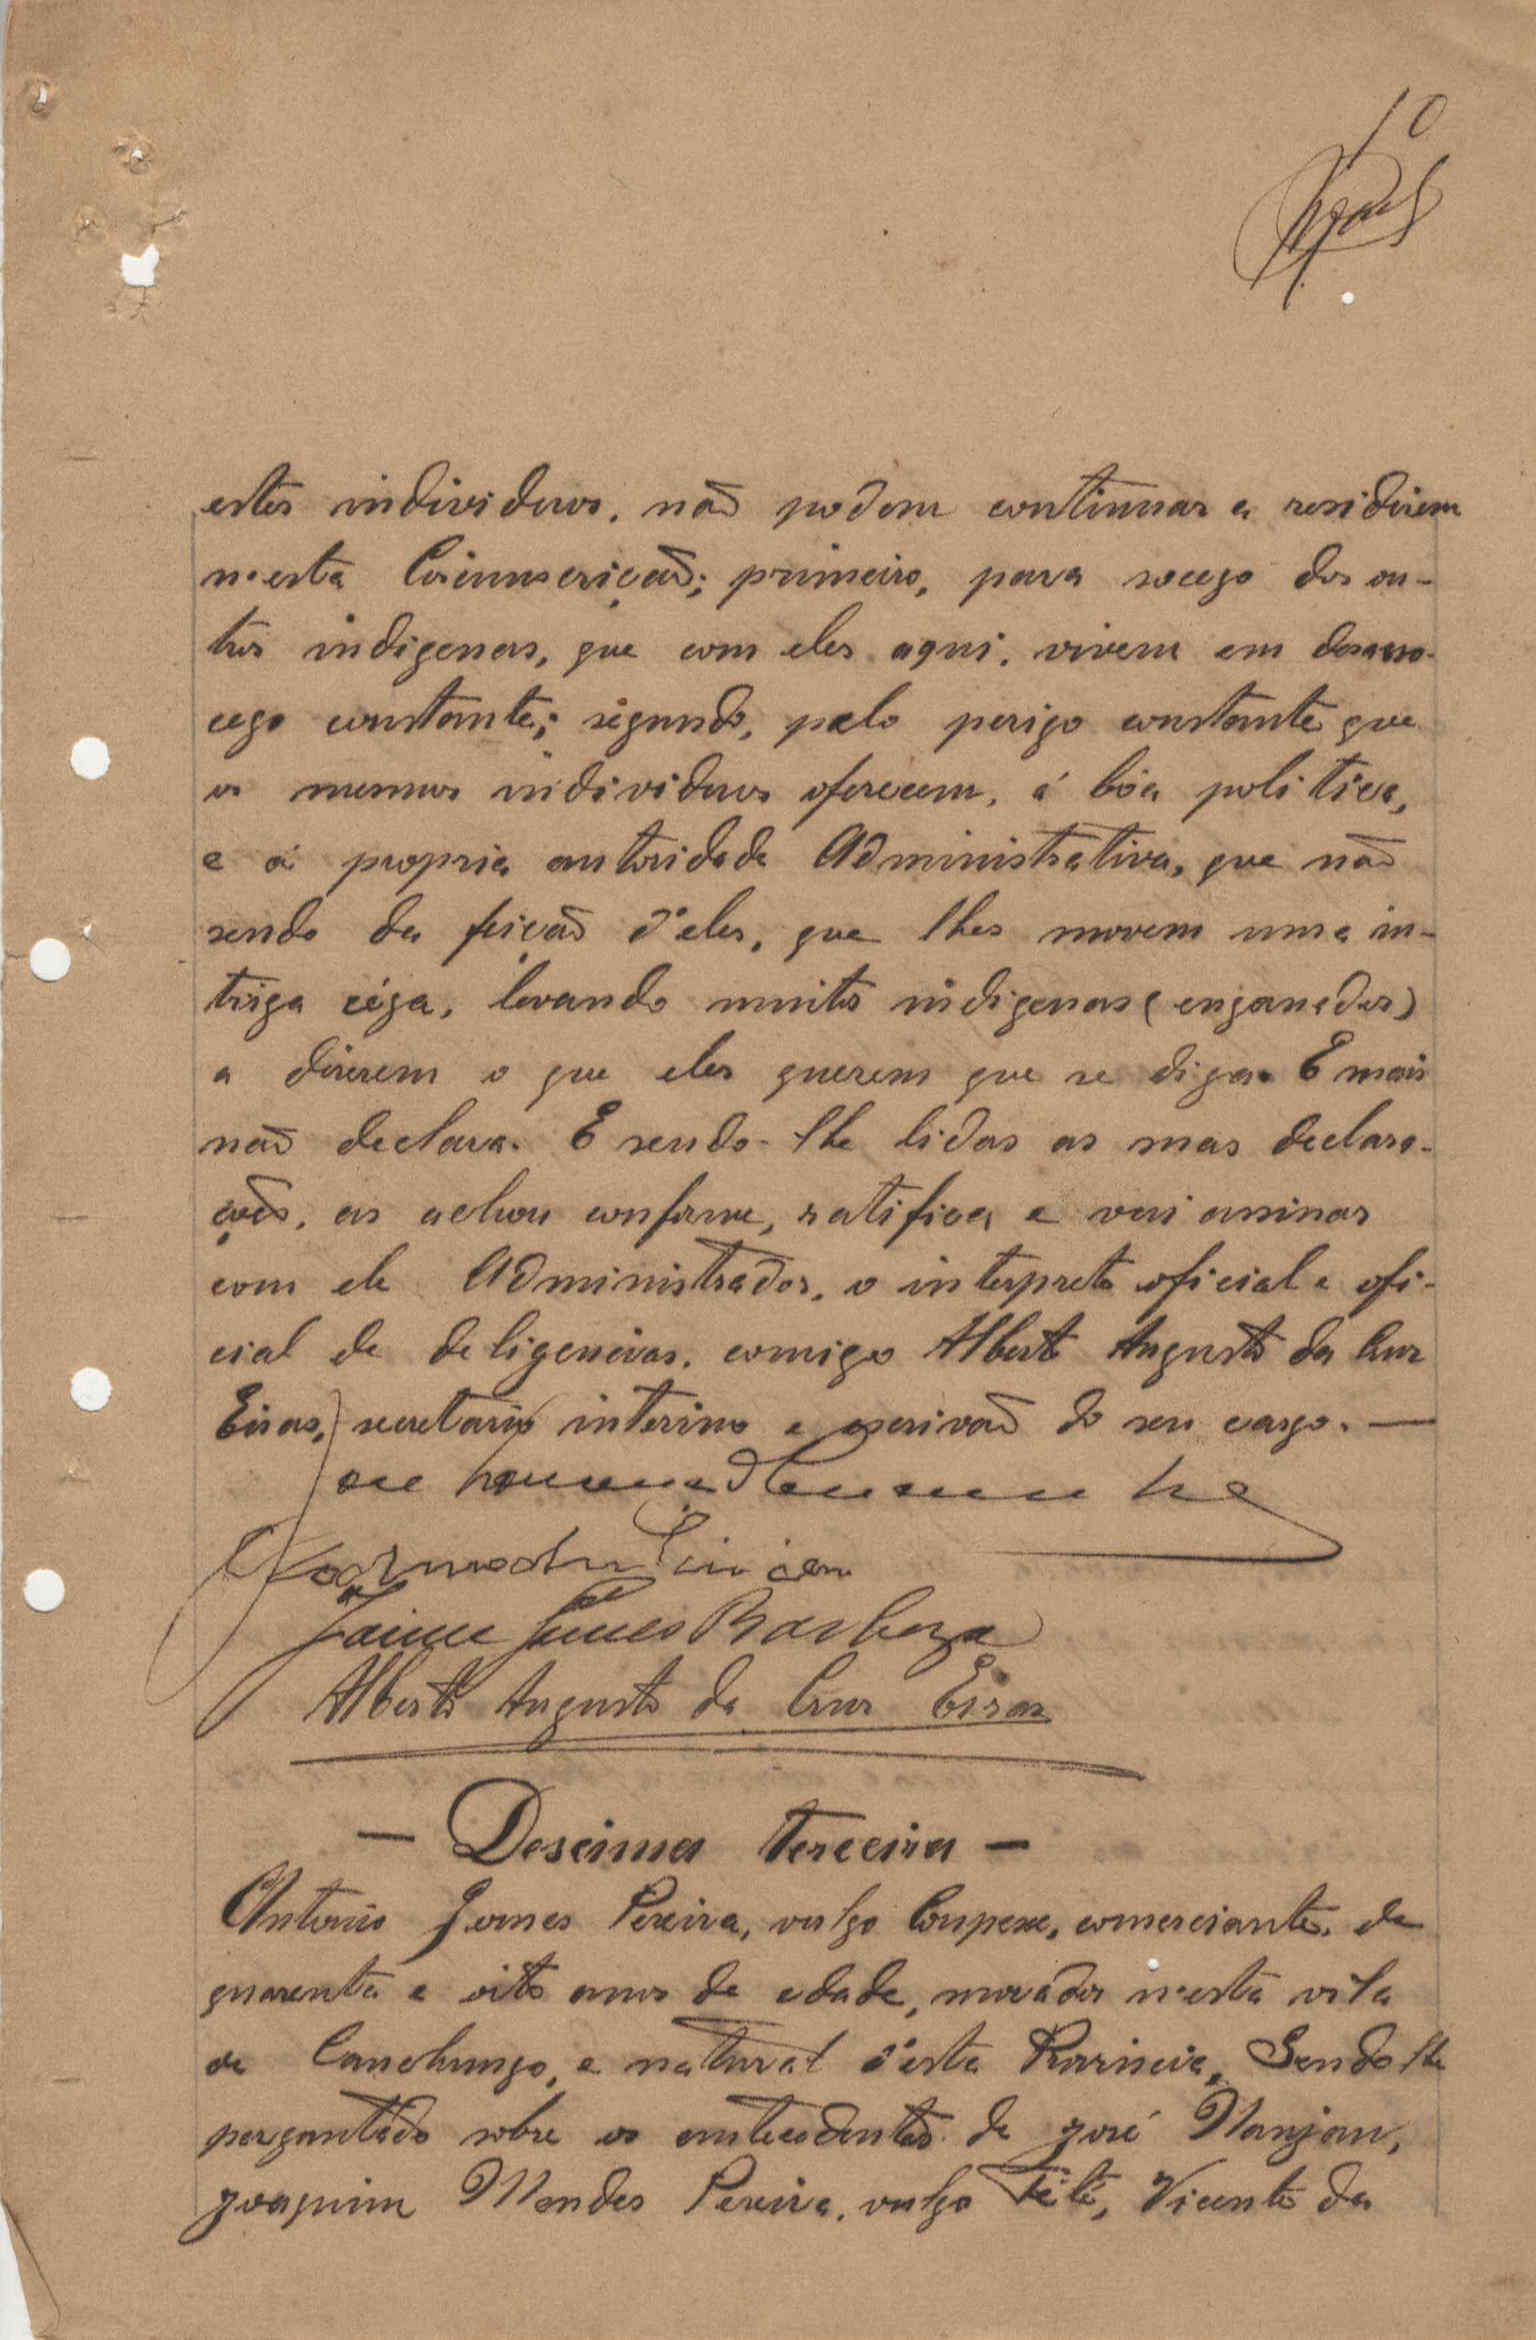 10
estes individuos, não podem continuar a residirem
n'esta Circunscrição; primeiro, para socego dos ou-
tros indigenas, que com eles aqui, vivem em desasso-
cego constante; segundo, pelo perigo constante que
os mesmos individuos oferecem, á bôa politica,
e á propria autoridade Administrativa, que não
sendo da feição d'eles, que lhes movem uma in-
triga céga, levando muitos indigenas (enganados)
a dizerem o que eles querem que se diga. E mais
não declara. E sendo-lhe lidas as suas declara-
ções, as achou conforme, ratifica e vai assinar
com ele Administrador, o interprete oficial e ofi-
cial de deligencias, comigo Alberto Augusto da Cruz
Eiras, secretario interino e escrivão do seu cargo. —
Jaime Gomes Barboza
Alberto Augusto da Cruz Eiras
— Descima terceira —
Antonio Gomes Pereira, vulgo Coupexe, comerciante, de
quarenta e oito anos de edade, morador n'esta vila
de Canchungo, e natural d'esta Provincia, Sendo lhe
perguntado sobre os antecedentes de José Nanjan,
Joaquim Mendes Pereira, vulgo Tété, Vicente da